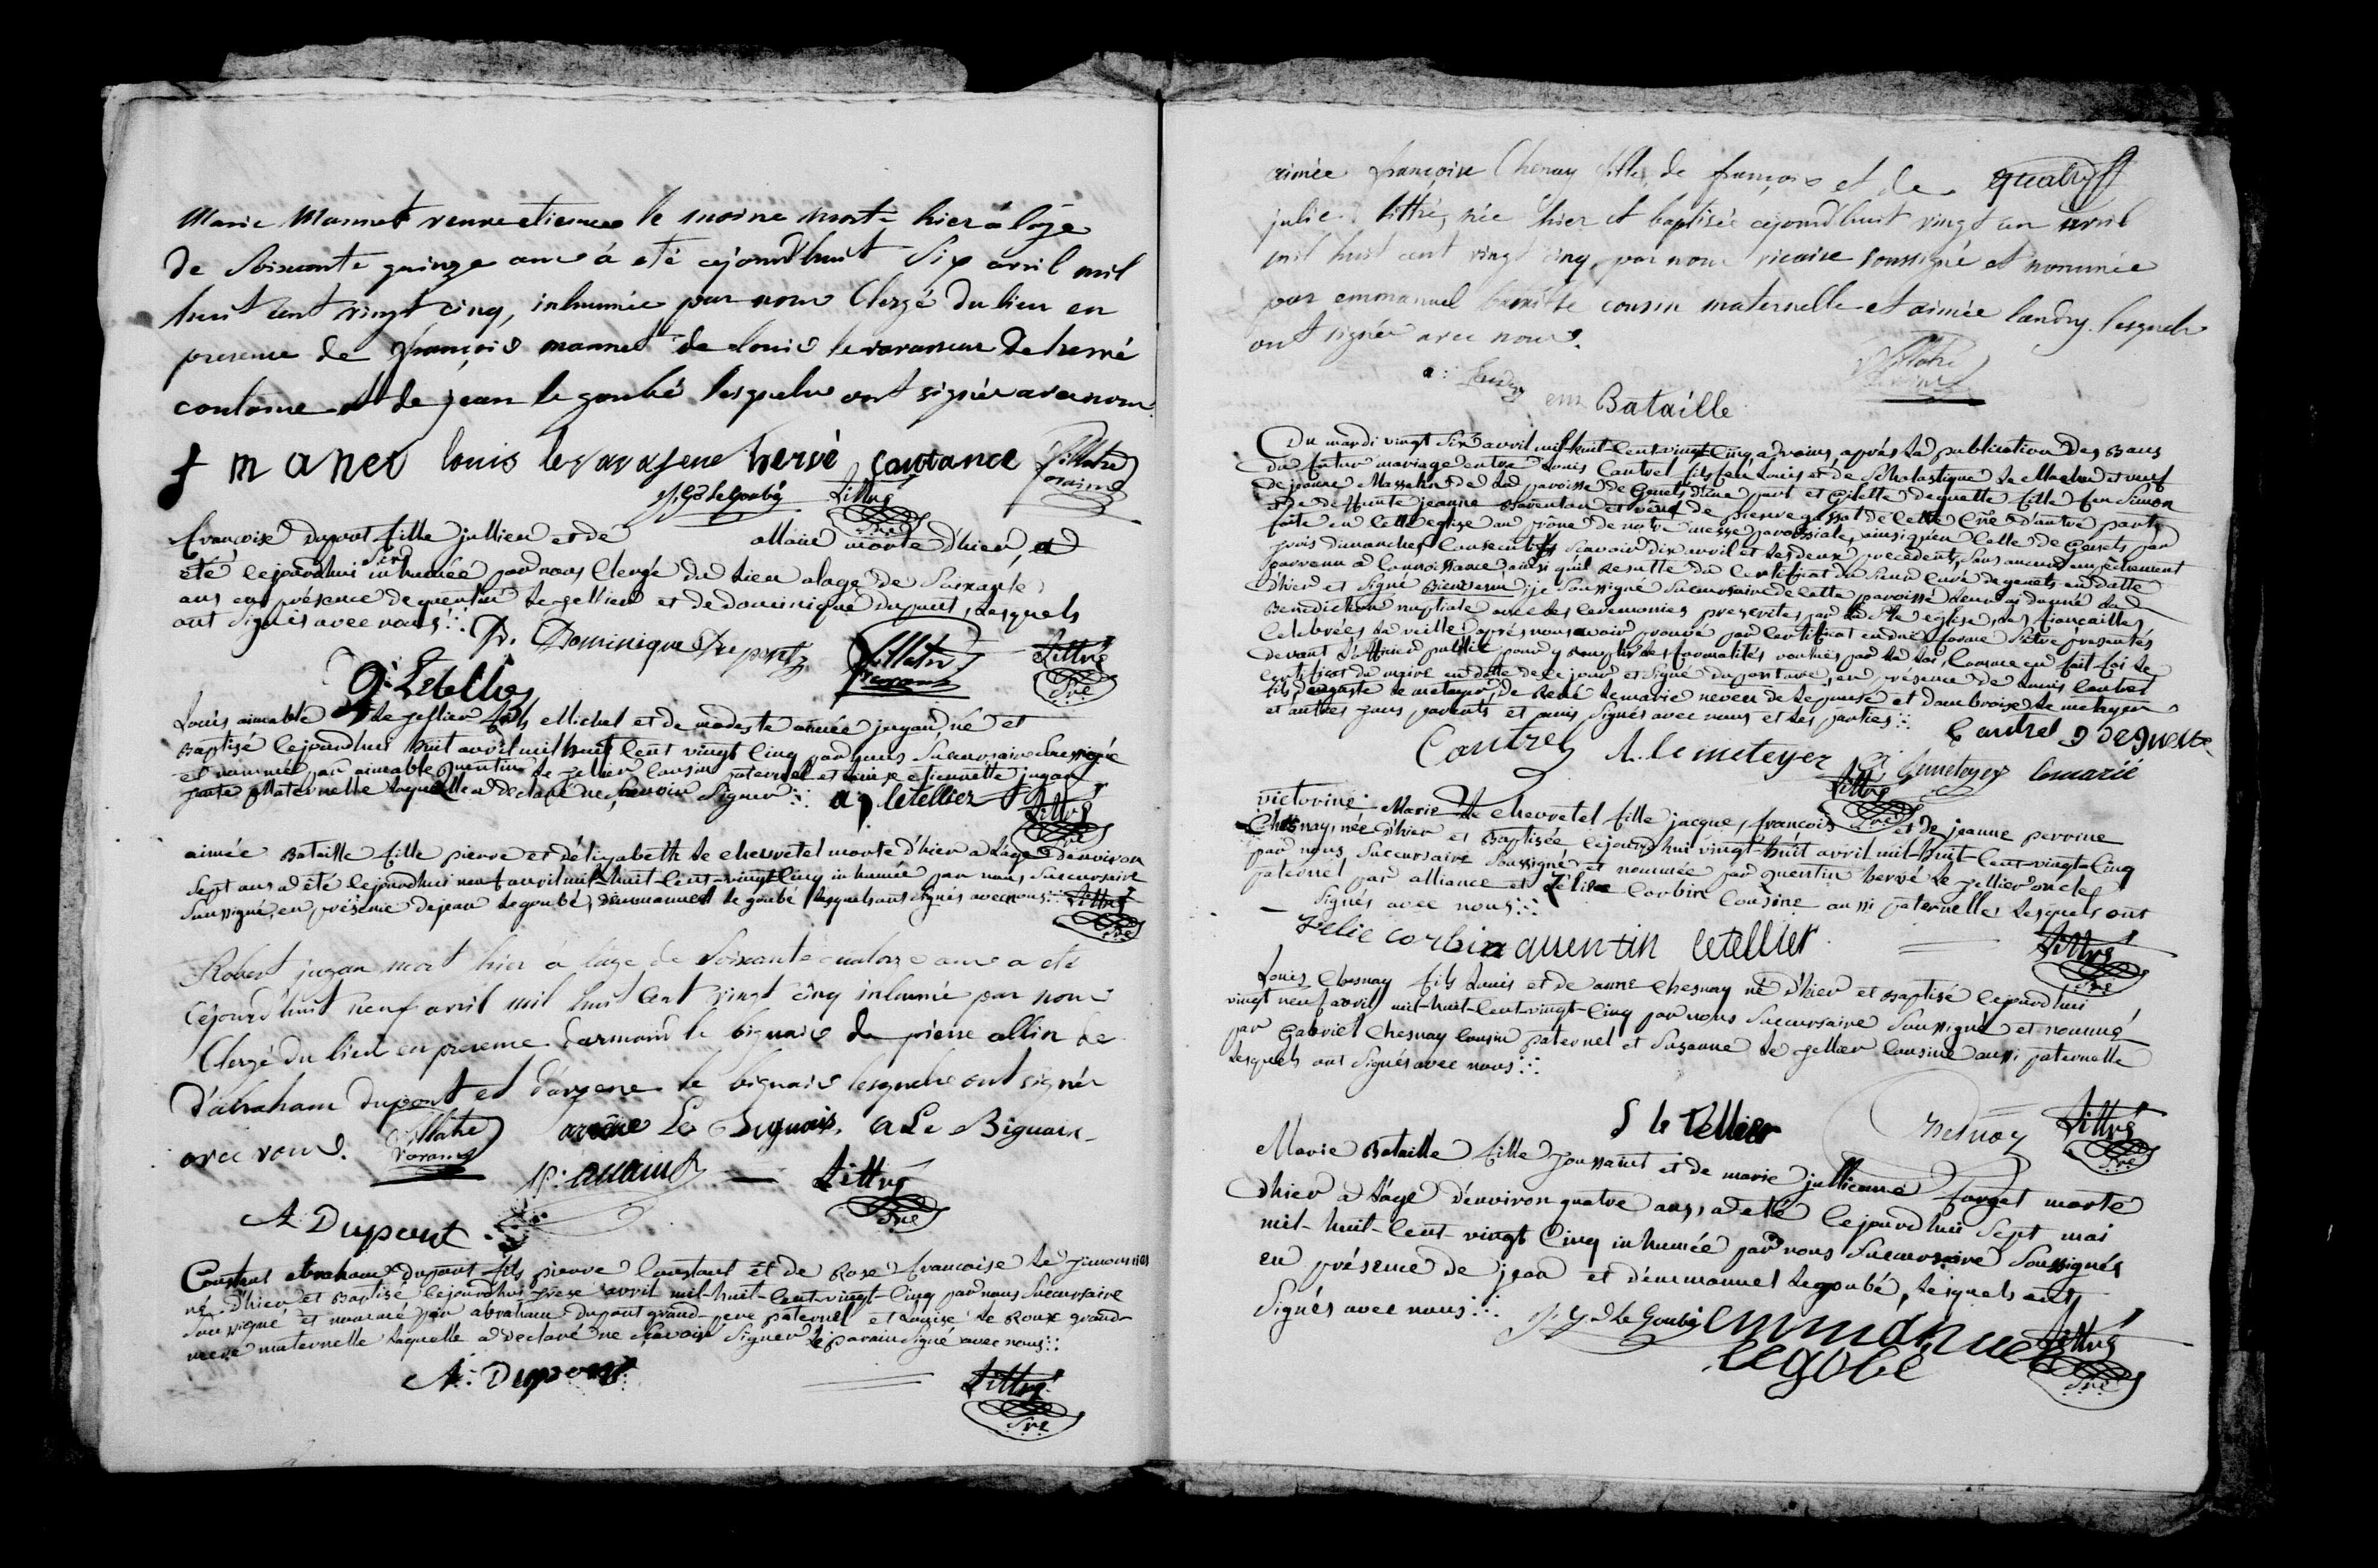 Marie Mannet veuve etienne le moine morte hier à l'âge
de Soixante quinze ans à eté cejourd'huit Six avril mil
huit cent vingt cinq, inhumée par nous Clergé du lieu en
presence de françois mannet de louis levavasseur de hervé
contance et de jean le goubé lesquels ont signés avec nous.
f maner louis levavaseur hervé contance
J. Gd LeGoubé Littré
Sre
françoise dupont fille jullien et de allain morte d'hier, a
été cejourdhui Six inhumée par nous Clergé du lieu a lage de Soixante
ans en présence de quentin Le tellier et de dominique dupont, Lesquels
ont Signés avec nous
Dominique Dupont Littré
Sre
q: Letellier
Louis aimable Le tellier fils Michel et de modeste aimée jugan, né et
Baptisé cejourdhui huit avril mil huit cent vingt Cinq par nous Succursaire Soussigné
et nommé par aimable Quentin Le tellier Cousin paternel et Louise etiennette jugan
tante Maternelle laquelle a déclaré ne Scavoir Signer
a q letellier Littré
Sre
aimée Bataille fille pierre et d'élizabeth le chevretel morte d'hier a Lage d'environ
Sept ans a été cejourdhui neuf avril mil-huit-Cent-vingt Cinq inhumée par nous Succursaire
Soussigné, en présence de jean Legoubé, d'emmanuel le goubé Lesquels ont Signés avec nous Littré
Sre
Robert jugan mort hier à l'age de Soixante quatorze ans a été
Cejourd'huit neuf avril mil huit Cent vingt cinq inhumé par nous
Clergé du lieu en presence d'armand le bignais de pierre allin de
d'abraham dupont et d'arzene le bignais lesquels ont signés
avec nous. arsene Le Bignais. A Le Bignais
p: allain Littré
Sre
A: Dupont
Constant abraham dupont fils pierre Constant et de Rose francoise Le
né d'hier et Baptisé Cejourdhui treze avril mil-huit-Cent-vingt-Cinq par nous Succursaire
Soussigné et nommé par abraham Dupont grand-pere paternel et Louise Le Roux grand-
mere maternelle laquelle a declaré ne Scavoir Signer Le parain Signé avec nous
A: Dupont Littré
Sre
quatre
aimée françoise Chenay fille de françois et de
julie Littré, née hier et baptisée cejourd'huit vingt un avril
mil huit cent vingt cinq, par nous vicaire soussigné et nommée
par emmanuel bataille cousin maternelle et aimée landry lesquels
ont signés avec nous.
a: Landry em Bataille
Du mardi vingt Six avril mil-huit-Cent-vingt-Cinq, avons, après la publication des Bans
du futur mariage entre Louis Cantrel fils feu Louis et de Scholastique Le Machu et veuf
de jeanne Masselin de la paroisse de Genets d'une part et Gilette dequette fille feu Simon
et de deffunte jeanne et veuve de pierre gassot de Cette Cne d'autre part
faite en Cette eglise au prône de notre messe paroissiale, ainsiqu'en Celle de Genets par
trois dimanches Consecutifs Scavoir dix avril et Les deux precedents, Sans aucun empechement
parvenu a Connoissance, ainsi quil Resulte du Certificat du Sieur Curé de genets en datte
d'hier et Signé Bienvenu, je Soussigné Succursaire de Cette paroisse Leur ai donné La
Benediction nuptiale avec les Ceremonies prescrites par La Ste eglise, les fiançailles
Celebrées La veille, après nous avoir prouvé par Certificat en due forme S'etre presentés
devant L'officier public pour y Remplir les formalités voulues par La Loi, Comme en fait foi Le
Certificat du maire en datte de Ce jour et Signé dupont ave, en présence de Louis Cantrel
fils, d'auguste Le metayer, de René Lemarié neveu de Lepouse et d'ambroise Le metayer
et autres tous parents et amis Signés avec nous et Les parties
Cantrel A. le meteyer Cantrel g dequette
Lemeteyer lemarié
Littré
Sre
victorine Marie Le Chevretel fille jacque, francois et de jeanne perrine
Chesnay, née d'hier et Baptisée cejourdhui vingt-huit avril mil-huit-Cent-vingt-Cinq
par nous Succursaire Soussigné et nommée par Quentin hervé Le tellier oncle
paternel par alliance et Zélie Corbin Cousine aussi paternelle Lesquels ont
Signés avec nous
Zelie corbin quentin letellier Littré
Sre
Louis Chesnay fils Louis et de anne Chesnay né d'hier et Baptisé cejourdhui
vingt neuf avril mil-huit-Cent-vingt-Cinq par nous Succursaire Soussigné et nommé
par Gabriel Chesnay Cousin paternel et Suzanne Le tellier Cousine aussi paternelle
Lesquels ont Signés avec nous
S le tellier Chesnay Littré
Sre
Marie Bataille fille toussaint et de marie jullienne forget morte
d'hier à L'âge d'environ quatre ans, a été Cejourdhui Sept mai
mil-huit-Cent-vingt Cinq inhumée par nous Succursaire Soussigné
en présence de jean et d'emmanuel Legoubé, Lesquels ont
Signés avec nous
J. Gd Le Goubé emmanuel Littré
legobé Sre